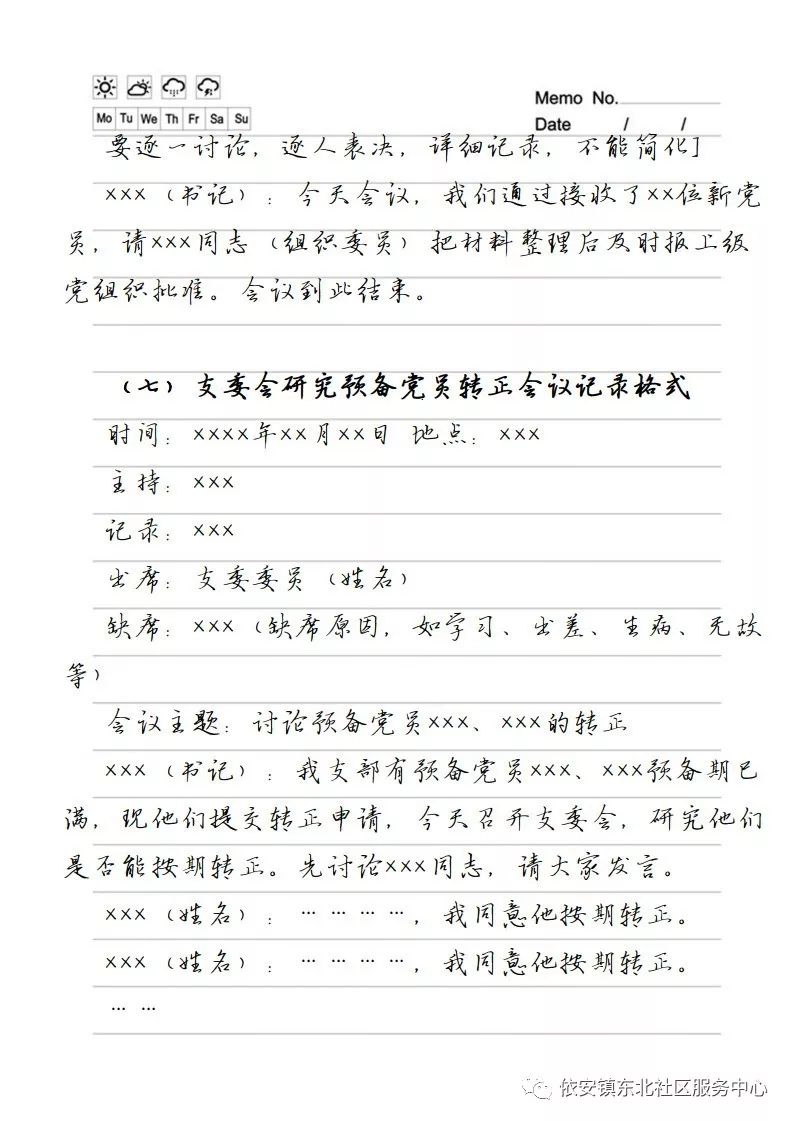 Memo No.
Mo Tu We Th Fr Sa Su
Date / /
要逐一讨论，逐人表决，详细记录，不能简化]
×××（书记）：今天会议，我们通过接收了××位新党
员，请×××同志（组织委员）把材料整理后及时报上级
党组织批准。会议到此结束。
（七）支委会研究预备党员转正会议记录格式
时间：××××年××月××日 地点：×××
主持：×××
记录：×××
出席：支委委员（姓名）
缺席：×××（缺席原因，如学习、出差、生病、无故
等）
会议主题：讨论预备党员×××、×××的转正
×××（书记）：我支部有预备党员×××、×××预备期已
满，现他们提交转正申请，今天召开支委会，研究他们
是否能按期转正。先讨论×××同志，请大家发言。
×××（姓名）：… … … …，我同意他按期转正。
×××（姓名）：… … … …，我同意他按期转正。
… …
依安镇东北社区服务中心